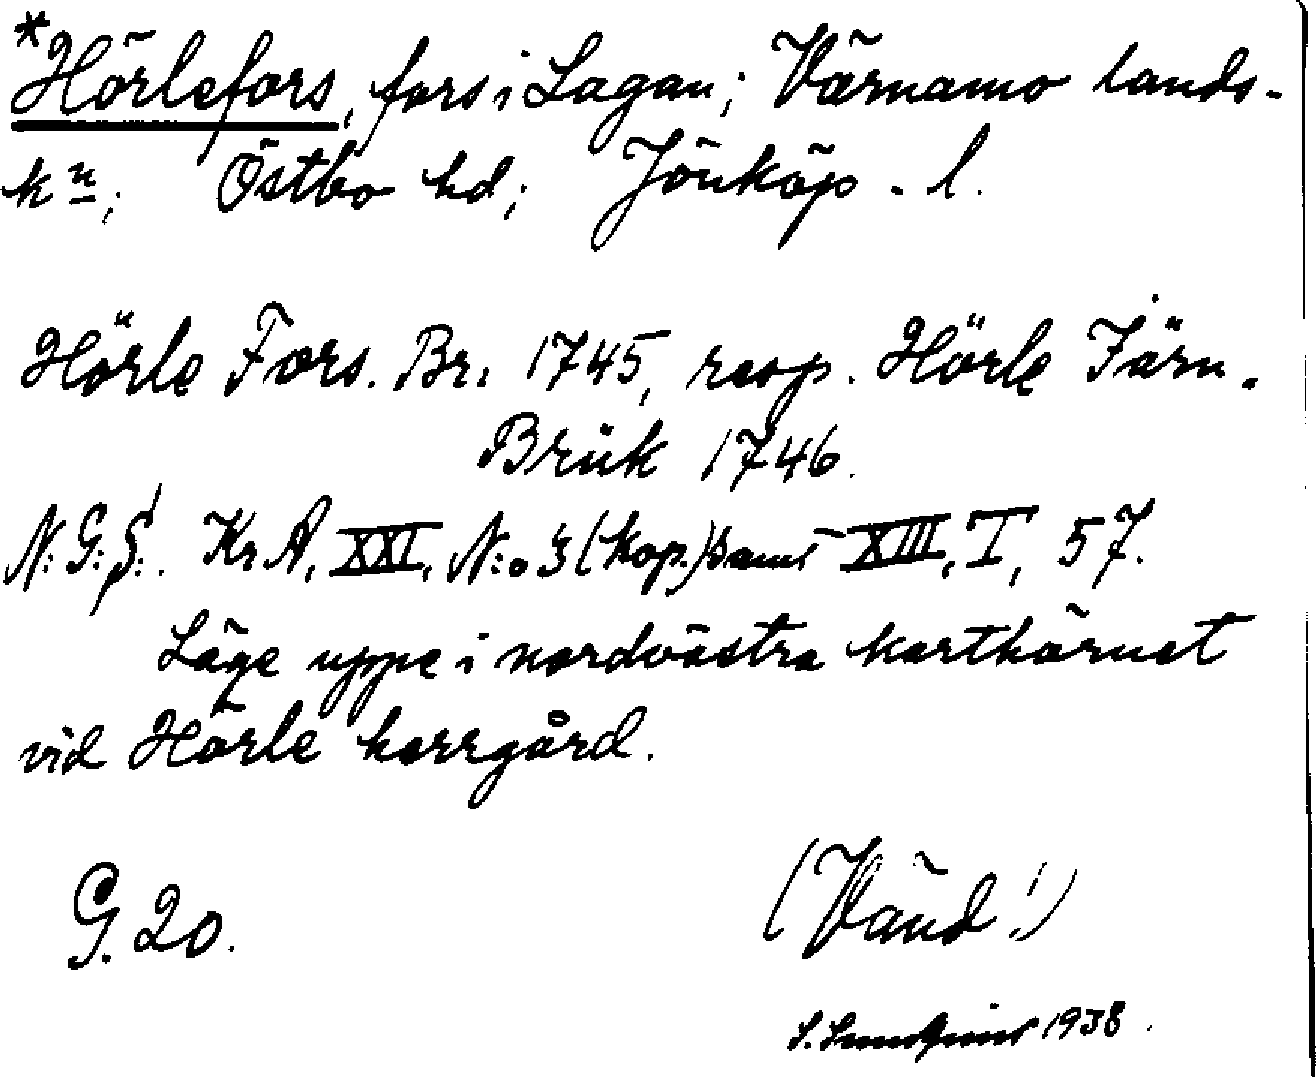 *Hörlefors, fors i Lagan; Värnamo lands-
kn; Östbo hd; Jönköp. l.
Hörle Fors. Br. 1745, resp. Hörle Järn.
Brük 1746.
N: G: S:. Kr A, XXI, N:o 3 (kop.) samt XIII, I, 57.
Läge uppe i nordvästra karthörnet
vid Hörle herrgård.
G. 20.
(Vänd!)
S. Lundqvist 1938.